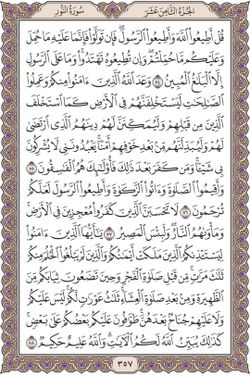 الجزء الثامن عشر سورة النور
قُلْ أَطِيعُوا۟ ٱللَّهَ وَأَطِيعُوا۟ ٱلرَّسُولَ فَإِن تَوَلَّوْا۟ فَإِنَّمَا عَلَيْهِ مَا حُمِّلَ
وَعَلَيْكُم مَّا حُمِّلْتُمْ وَإِن تُطِيعُوهُ تَهْتَدُوا۟ وَمَا عَلَى ٱلرَّسُولِ
إِلَّا ٱلْبَلَٰغُ ٱلْمُبِينُ ٥٤ وَعَدَ ٱللَّهُ ٱلَّذِينَ ءَامَنُوا۟ مِنكُمْ وَعَمِلُوا۟
ٱلصَّٰلِحَٰتِ لَيَسْتَخْلِفَنَّهُمْ فِى ٱلْأَرْضِ كَمَا ٱسْتَخْلَفَ
ٱلَّذِينَ مِن قَبْلِهِمْ وَلَيُمَكِّنَنَّ لَهُمْ دِينَهُمُ ٱلَّذِى ٱرْتَضَىٰ
لَهُمْ وَلَيُبَدِّلَنَّهُم مِّنۢ بَعْدِ خَوْفِهِمْ أَمْنًا يَعْبُدُونَنِى لَا يُشْرِكُونَ
بِى شَيْـًٔا وَمَن كَفَرَ بَعْدَ ذَٰلِكَ فَأُو۟لَٰٓئِكَ هُمُ ٱلْفَٰسِقُونَ ٥٥
وَأَقِيمُوا۟ ٱلصَّلَوٰةَ وَءَاتُوا۟ ٱلزَّكَوٰةَ وَأَطِيعُوا۟ ٱلرَّسُولَ لَعَلَّكُمْ
تُرْحَمُونَ ٥٦ لَا تَحْسَبَنَّ ٱلَّذِينَ كَفَرُوا۟ مُعْجِزِينَ فِى ٱلْأَرْضِ
وَمَأْوَىٰهُمُ ٱلنَّارُ وَلَبِئْسَ ٱلْمَصِيرُ ٥٧ يَٰٓأَيُّهَا ٱلَّذِينَ ءَامَنُوا۟
لِيَسْتَـْٔذِنكُمُ ٱلَّذِينَ مَلَكَتْ أَيْمَٰنُكُمْ وَٱلَّذِينَ لَمْ يَبْلُغُوا۟ ٱلْحُلُمَ مِنكُمْ
ثَلَٰثَ مَرَّٰتٍ مِّن قَبْلِ صَلَوٰةِ ٱلْفَجْرِ وَحِينَ تَضَعُونَ ثِيَابَكُم مِّنَ
ٱلظَّهِيرَةِ وَمِنۢ بَعْدِ صَلَوٰةِ ٱلْعِشَآءِ ثَلَٰثُ عَوْرَٰتٍ لَّكُمْ لَيْسَ عَلَيْكُمْ
وَلَا عَلَيْهِمْ جُنَاحٌۢ بَعْدَهُنَّ طَوَّٰفُونَ عَلَيْكُم بَعْضُكُمْ عَلَىٰ بَعْضٍ
كَذَٰلِكَ يُبَيِّنُ ٱللَّهُ لَكُمُ ٱلْءَايَٰتِ وَٱللَّهُ عَلِيمٌ حَكِيمٌ ٥٨
٣٥٧